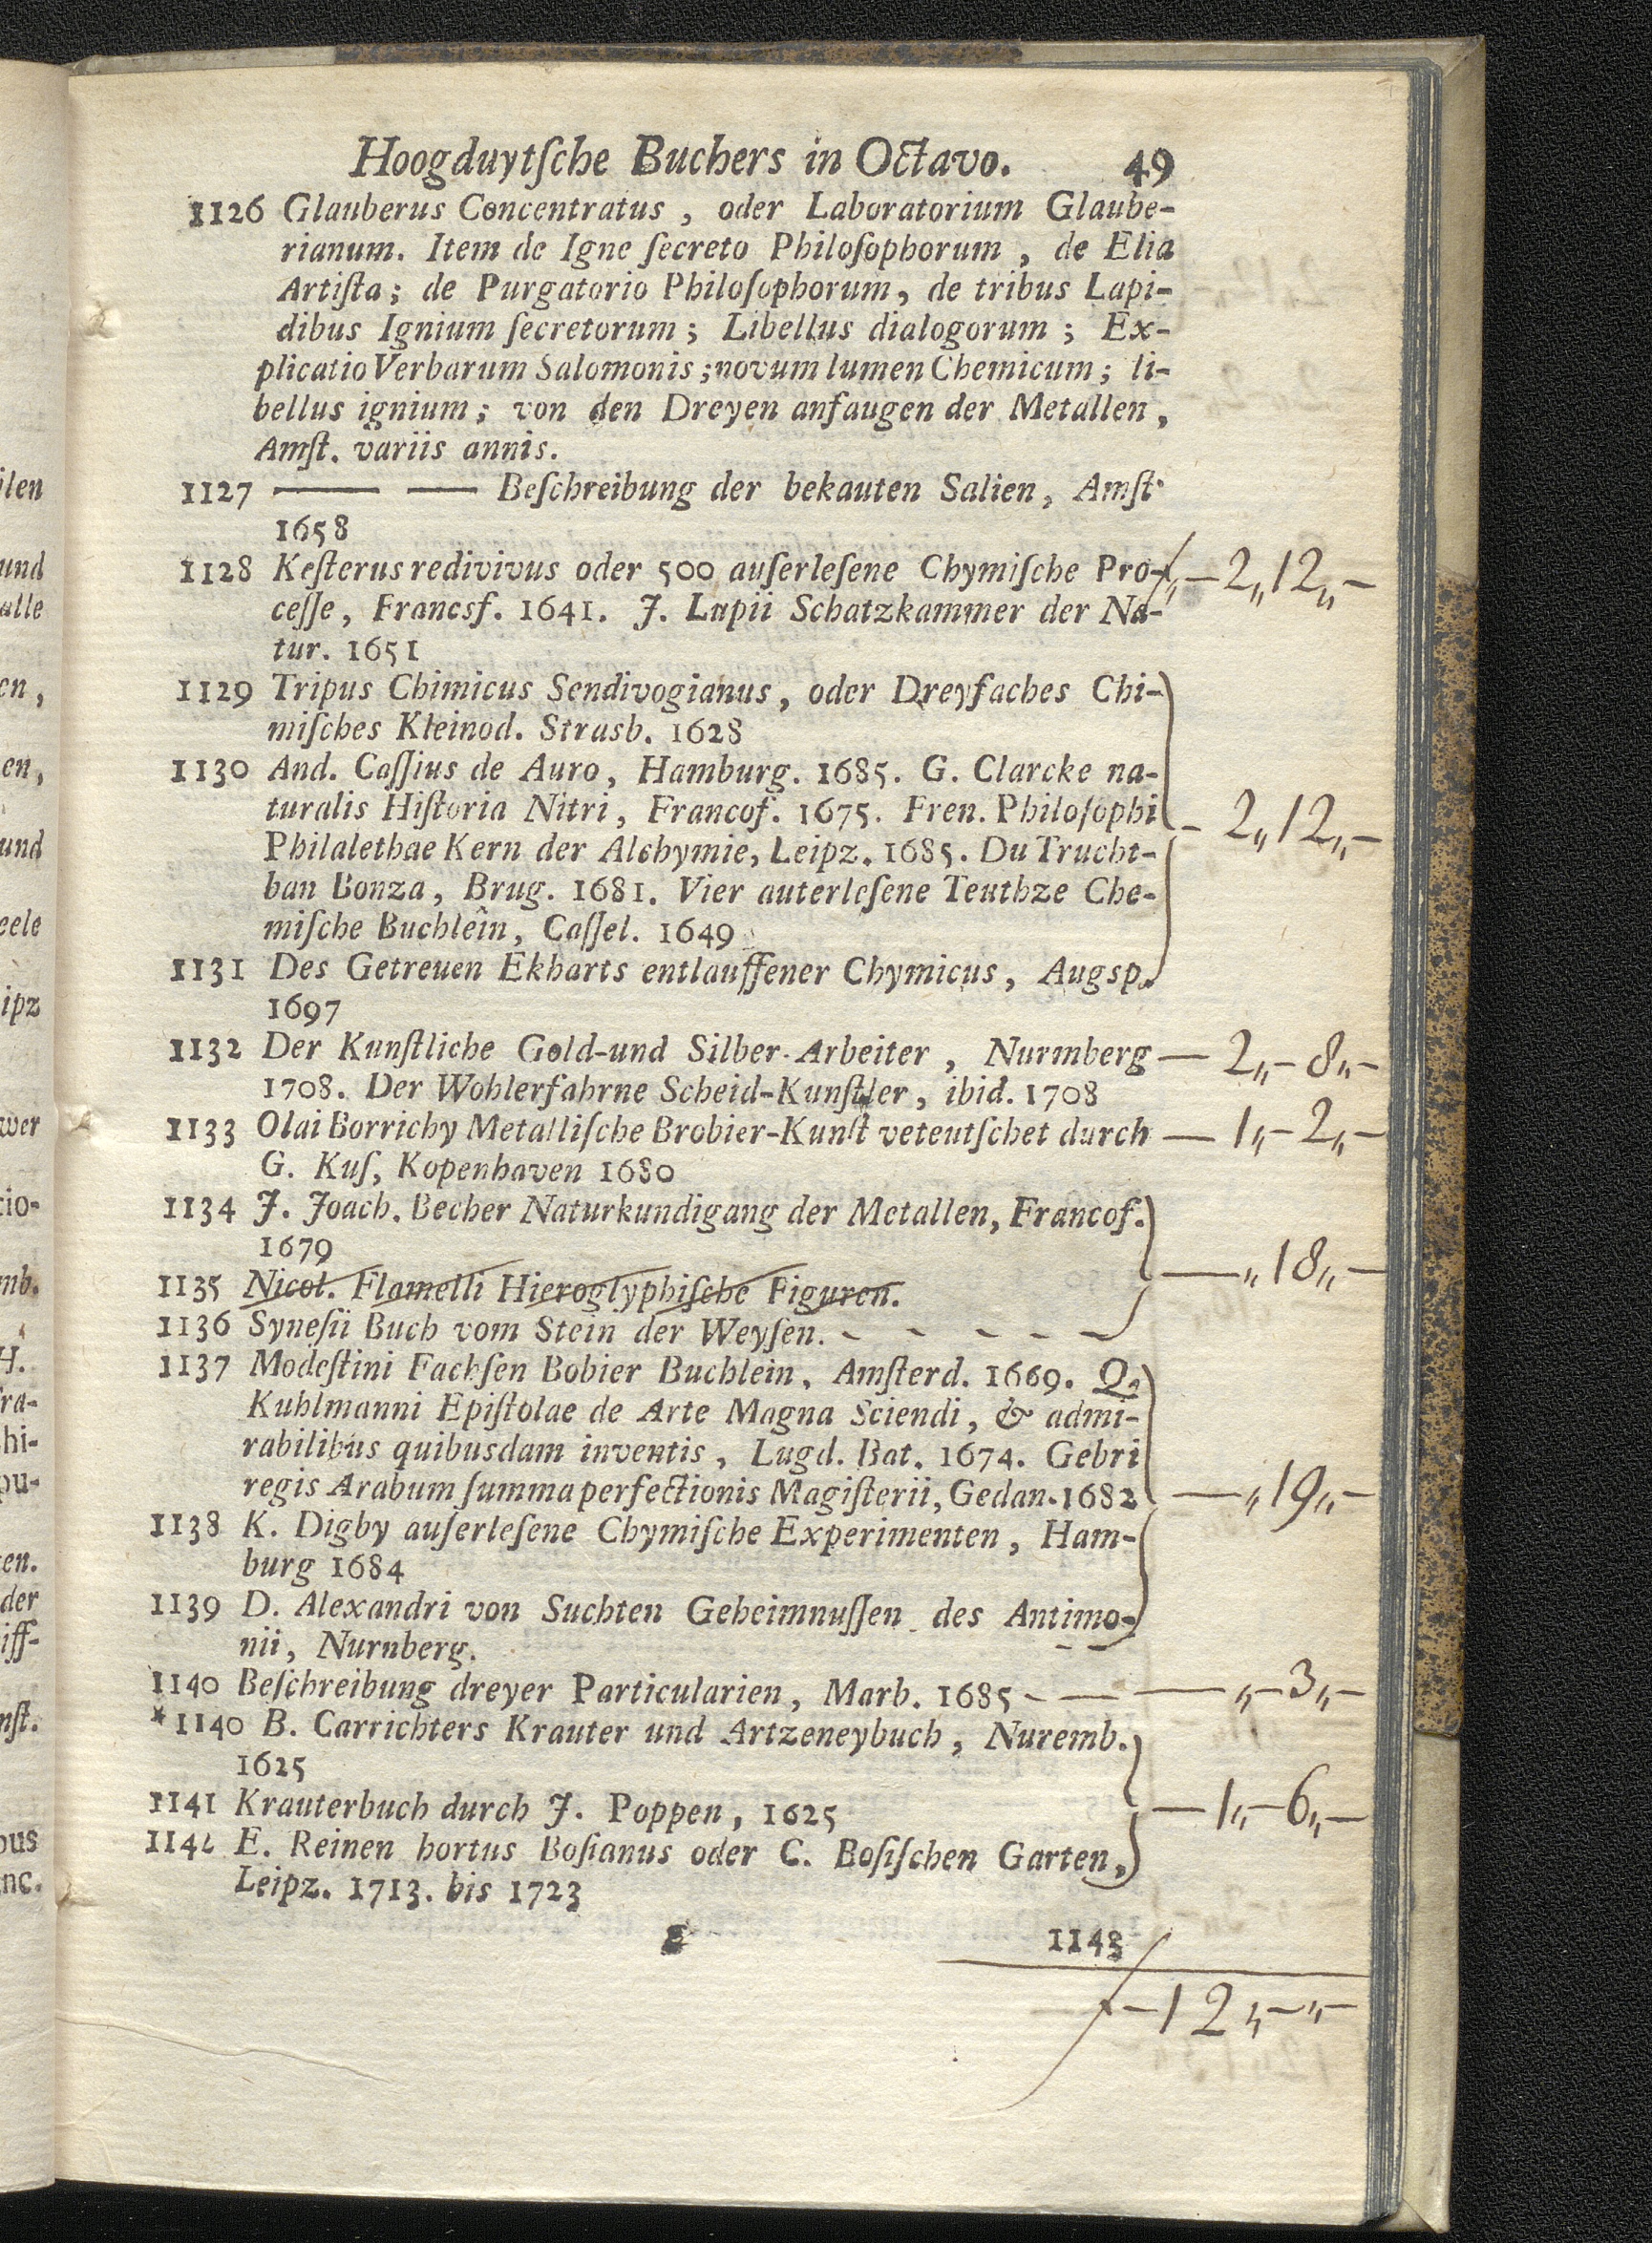 Hoogduytſche Buchers in Octavo. 49
1126 Glauberus Concentratus, oder Laboratorium Glaube-
rianum. Item de Igne ſecreto Philoſophorum, de Elia
Artiſta; de Purgatorio Philoſophorum, de tribus Lapi-
dibus Ignium ſecretorum; Libellus dialogorum; Ex-
plicatio Verbarum Salomonis; novum lumen Chemicum; li-
bellus ignium; von den Dreyen anfaugen der Metallen,
Amſt. variis annis.
1127 ——— —— Beſchreibung der bekauten Salien, Amſt.
1658
1128 Keſterus redivivus oder 500 auſerleſene Chymiſche Pro- — 2,, 12,, —
ceſſe, Francsf. 1641. J. Lupii Schatzkammer der Na-
tur. 1651
1129 Tripus Chimicus Sendivogianus, oder Dreyfaches Chi-
miſches Kleinod. Strasb. 1628
1130 And. Caſſius de Auro, Hamburg. 1685. G. Clarcke na-
turalis Hiſtoria Nitri, Francof. 1675. Fren. Philoſophi — 2,, 12,, —
Philalethae Kern der Alchymie, Leipz. 1685. Du Trucht-
ban Bonza, Brug. 1681. Vier auterleſene Teuthze Che-
miſche Buchleîn, Caſſel. 1649
1131 Des Getreuen Ekharts entlauffener Chymicus, Augsp.
1697
1132 Der Kunſtliche Gold-und Silber-Arbeiter, Nurmberg — 2,, — 8,, —
1708. Der Wohlerfahrne Scheid-Kunſtler, ibid. 1708
1133 Olai Borrichy Metalliſche Brobier-Kunſt veteutſchet durch — 1,, — 2,, —
G. Kuſ, Kopenhaven 1680
1134 J. Joach. Becher Naturkundigang der Metallen, Francof.
1679
— ,, 18,, —
1135 Nicol. Flamelli Hieroglyphiſche Figuren.
1136 Syneſii Buch vom Stein der Weyſen. - - - - -
1137 Modeſtini Fachſen Bobier Buchlein, Amſterd. 1669. Q.
Kuhlmanni Epiſtolae de Arte Magna Sciendi, & admi-
rabilibus quibusdam inventis, Lugd. Bat. 1674. Gebri
regis Arabum ſumma perfectionis Magiſterii, Gedan. 1682 — ,, 19,, —
1138 K. Digby auſerleſene Chymiſche Experimenten, Ham-
burg 1684
1139 D. Alexandri von Suchten Geheimnuſſen des Antimo-
nii, Nurnberg.
1140 Beſchreibung dreyer Particularien, Marb. 1685 - — — ,, — 3,, —
*1140 B. Carrichters Krauter und Artzeneybuch, Nuremb.
1625
1141 Krauterbuch durch J. Poppen, 1625 — 1,, — 6,, —
1142 E. Reinen hortus Boſianus oder C. Boſiſchen Garten,
Leipz. 1713. bis 1723
E 1143
— 12,, — ,, —
ilen
und
alle
en,
en,
und
eele
ipz
wer
tio-
mb.
H.
fra-
hi-
pu-
en.
der
iff-
nſt.
ous
nc.